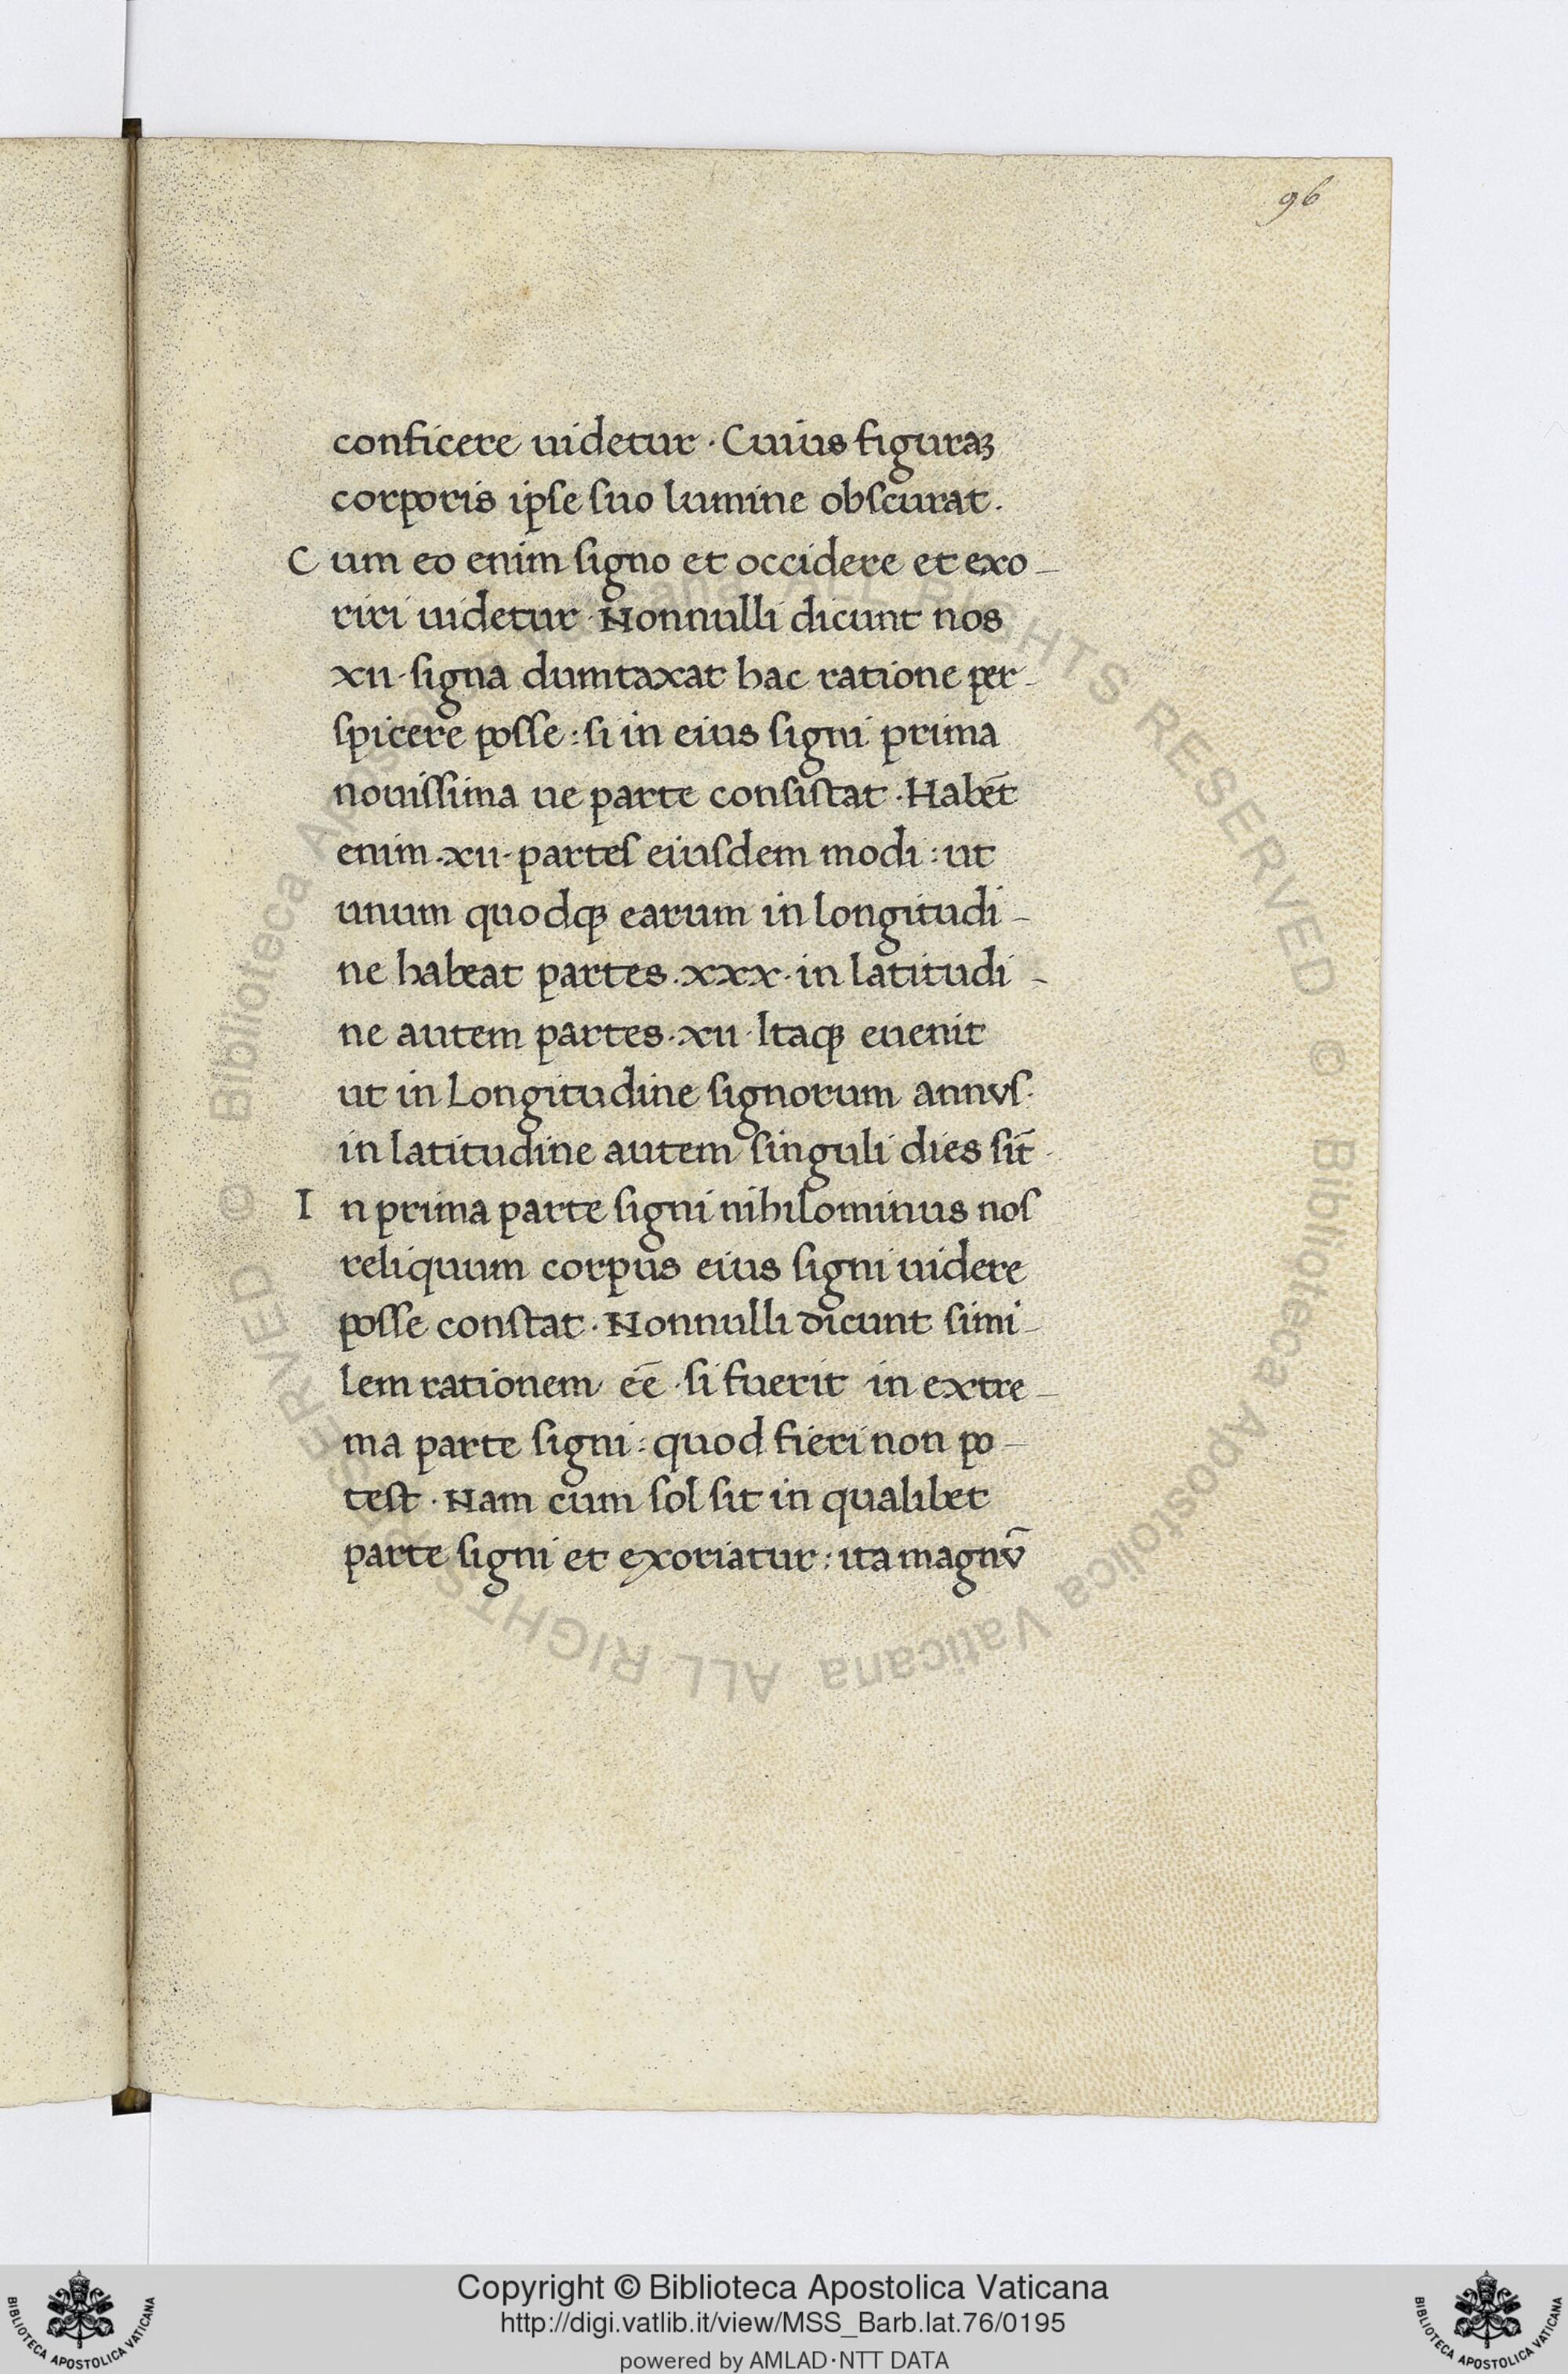 96
conficere uidetur · Cuius figuraꝫ
corporis ipſe ſuo lumine obſcurat.
Cum eo enim ſigno et occidere et exo-
riri uidetur · Nonnulli dicunt nos
xii · ſigna dumtaxat hac ratione per-
ſpicere poſſe : ſi in eius ſigni prima
nouiſſima ue parte conſiſtat · Habēt
enim · xii · parteſ eiuſdem modi : ut
unum quodqꝫ earum in longitudi-
ne habeat partes · xxx · in latitudi-
ne autem partes · xii · Itaqꝫ euenit
ut in Longitudine ſignorum annvſ ·
in latitudine autem ſinguli dies ſīt ·
In prima parte ſigni nihilominus noſ
reliquum corpus eius ſigni uidere
poſſe conſtat · Nonnulli dicunt ſimi-
lem rationem eē · ſi fuerit in extre-
ma parte ſigni : quod fieri non po-
teſt · Nam cum ſol ſit in qualibet
parte ſigni et exoriatur : ita magnv̄
© Biblioteca Apostolica Vaticana ALL RIGHTS RESERVED
© Biblioteca Apostolica Vaticana ALL RIGHTS RESERVED
BIBLIOTECA APOSTOLICA VATICANA
Copyright © Biblioteca Apostolica Vaticana
http://digi.vatlib.it/view/MSS_Barb.lat.76/0195
powered by AMLAD·NTT DATA
BIBLIOTECA APOSTOLICA VATICANA